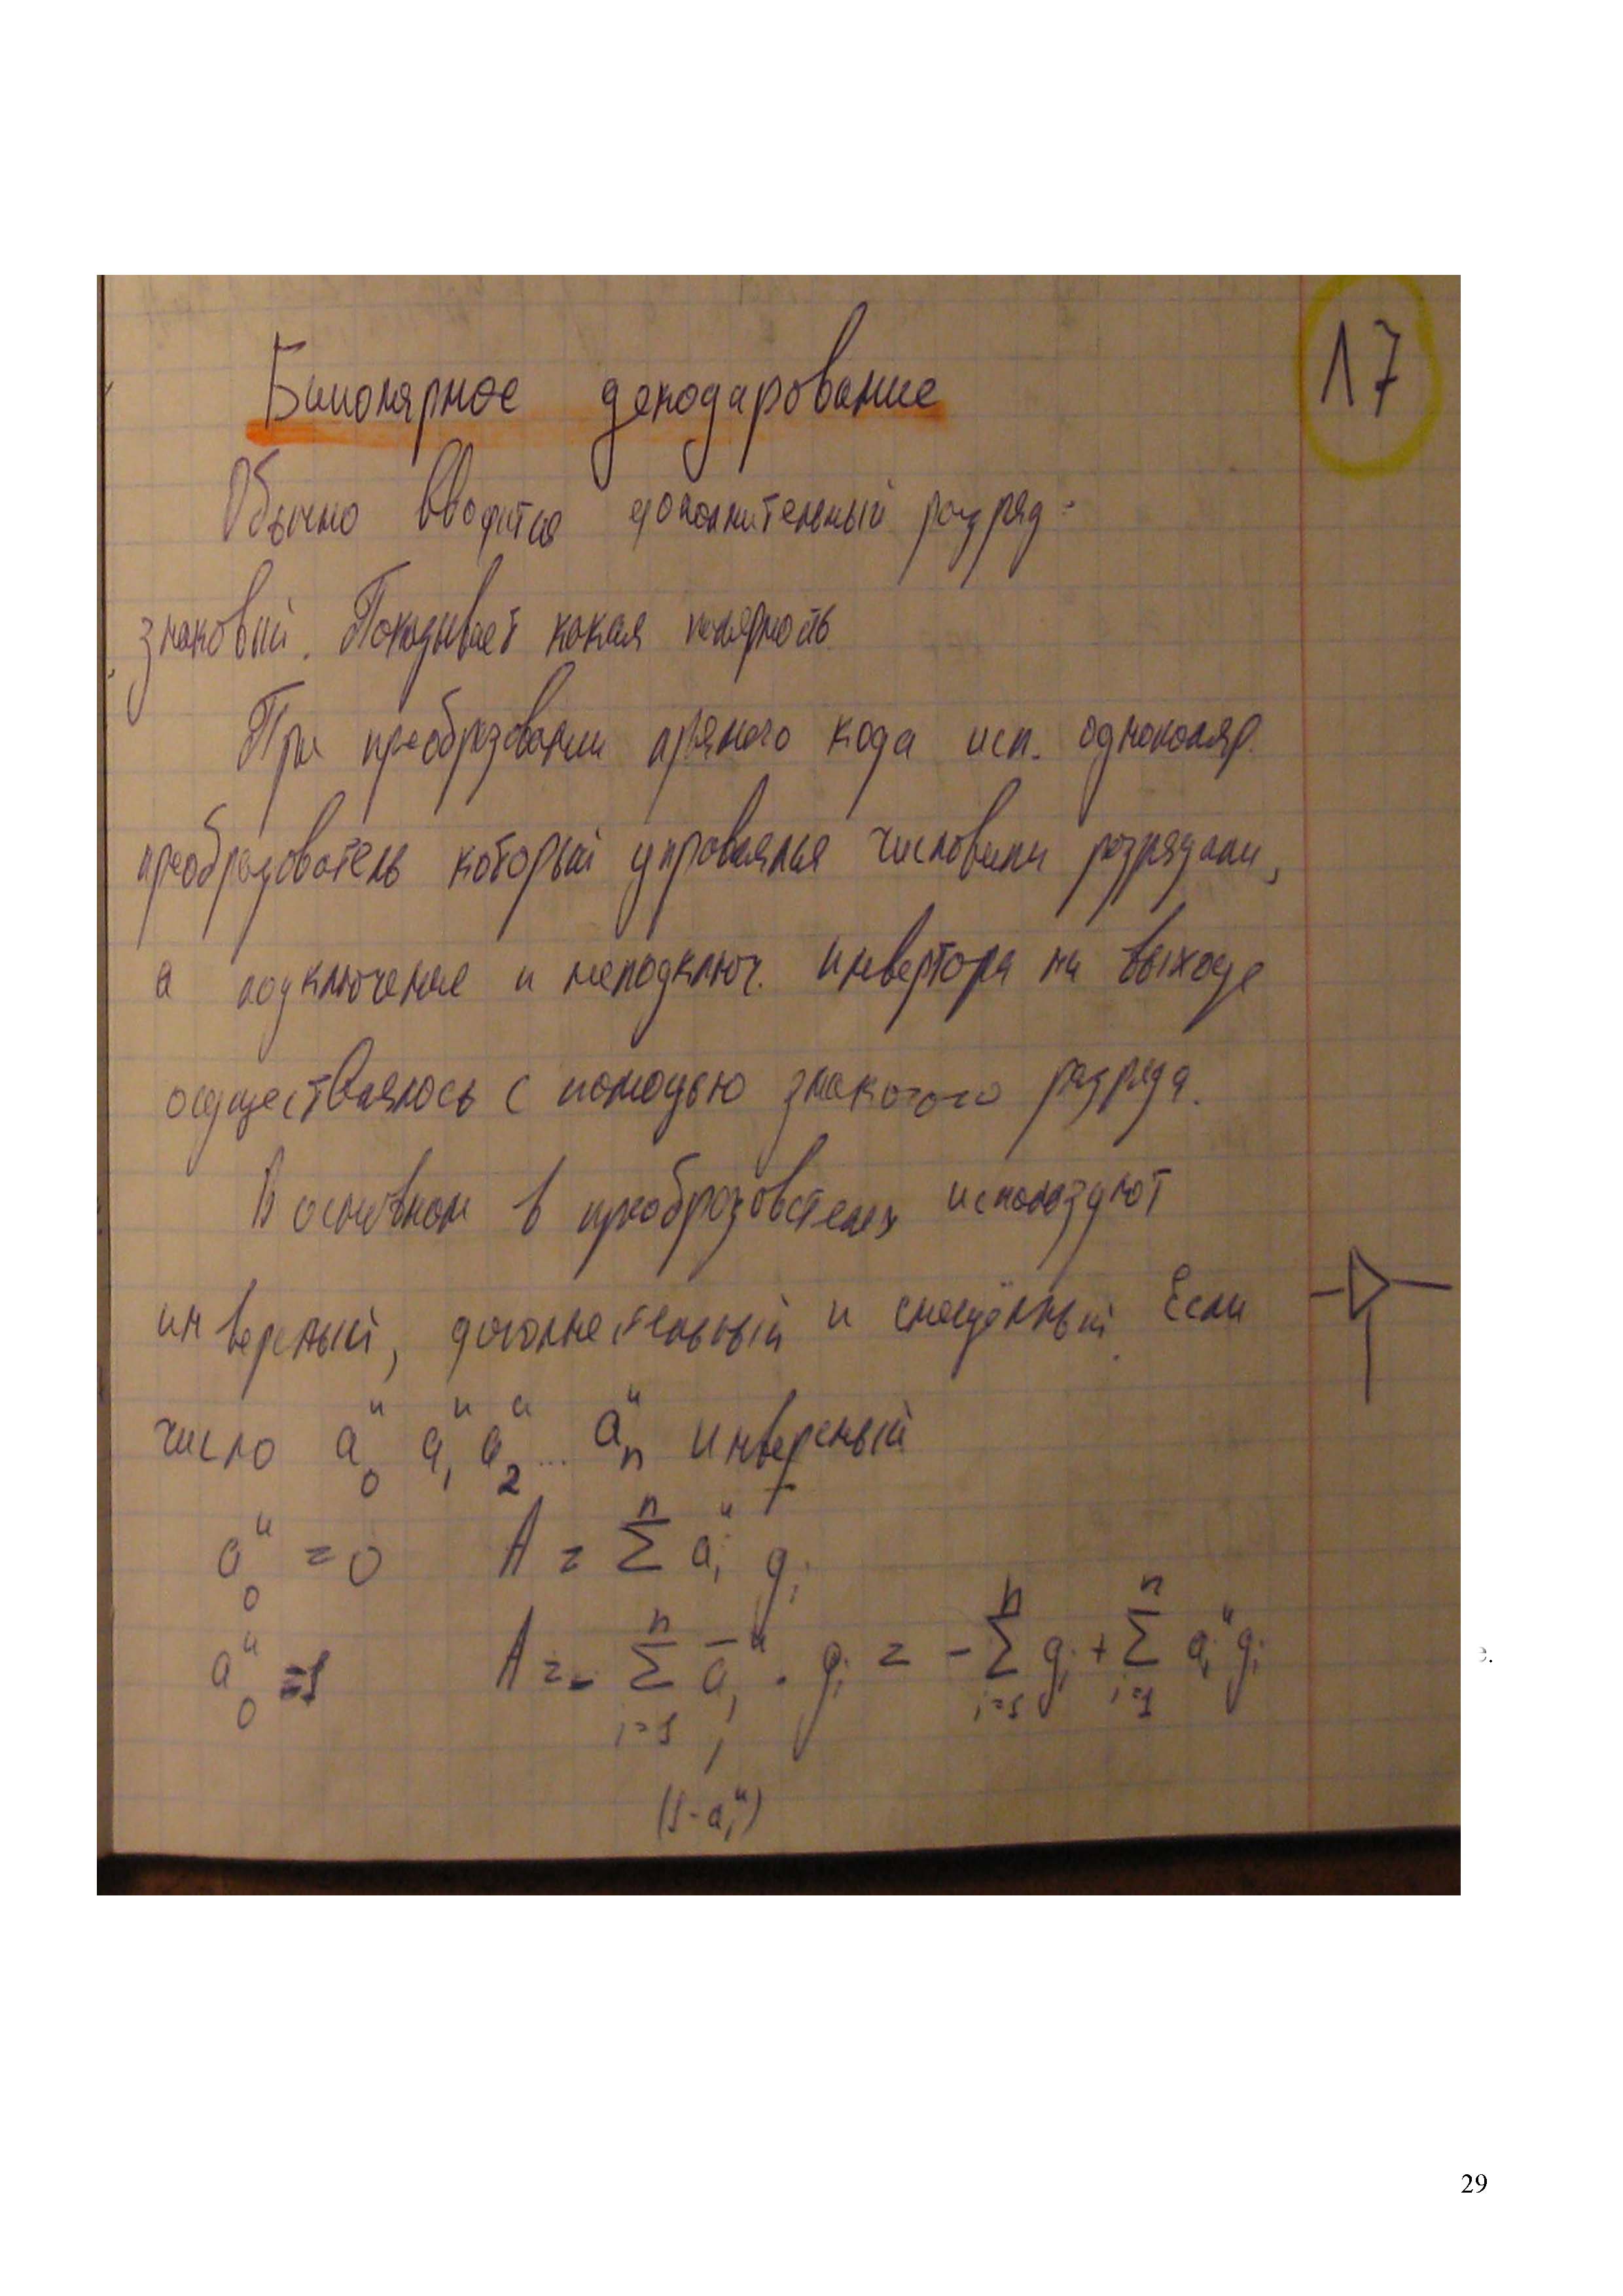 17
Биполярное декодирование
Обычно вводится дополнительный разряд -
знаковый. Показывает какая полярность.
При преобразовании прямого кода исп. однополяр.
преобразователь который управлялся числовыми разрядами,
а подключение и неподключ. инвертора на выходе
осуществлялось с помощью знакового разряда.
В основном в преобразователях используют
инверсный, дополнительный и смещённый. Если
число a₀ᵘ a₁ᵘ a₂ᵘ ... aₙᵘ инверсный
a₀ᵘ = 0 A = ∑ⁿ aᵢᵘ gᵢ
a₀ᵘ = 1 A = - ∑ⁿᵢ₌₁ āᵢᵘ · gᵢ = - ∑ⁿᵢ₌₁ gᵢ + ∑ⁿᵢ₌₁ aᵢᵘ gᵢ
(1 - aᵢᵘ)
29